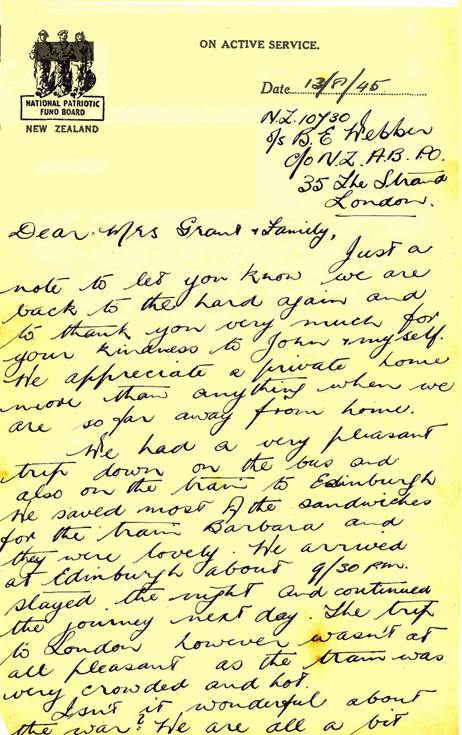 ON ACTIVE SERVICE.
Date 13/8/45
NATIONAL PATRIOTIC
FUND BOARD
NEW ZEALAND
N.Z. 10730
B. E. Webber
c/o N.Z. A.B. P.O.
35 The Strand
London.
Dear Mrs Grant & Family,
Just a
note to let you know we are
back to the hard again and
to thank you very much for
your kindness to John & myself.
We appreciate a private home
more than anything when we
are so far away from home.
We had a very pleasant
trip down on the bus and
also on the train to Edinburgh
We saved most of the sandwiches
for the train Barbara and
they were lovely. We arrived
at Edinburgh about 9/30 pm.
stayed the night and continued
the journey next day. The trip
to London however wasn't at
all pleasant as the train was
very crowded and hot.
Isn't it wonderful about
the war? We are all a bit